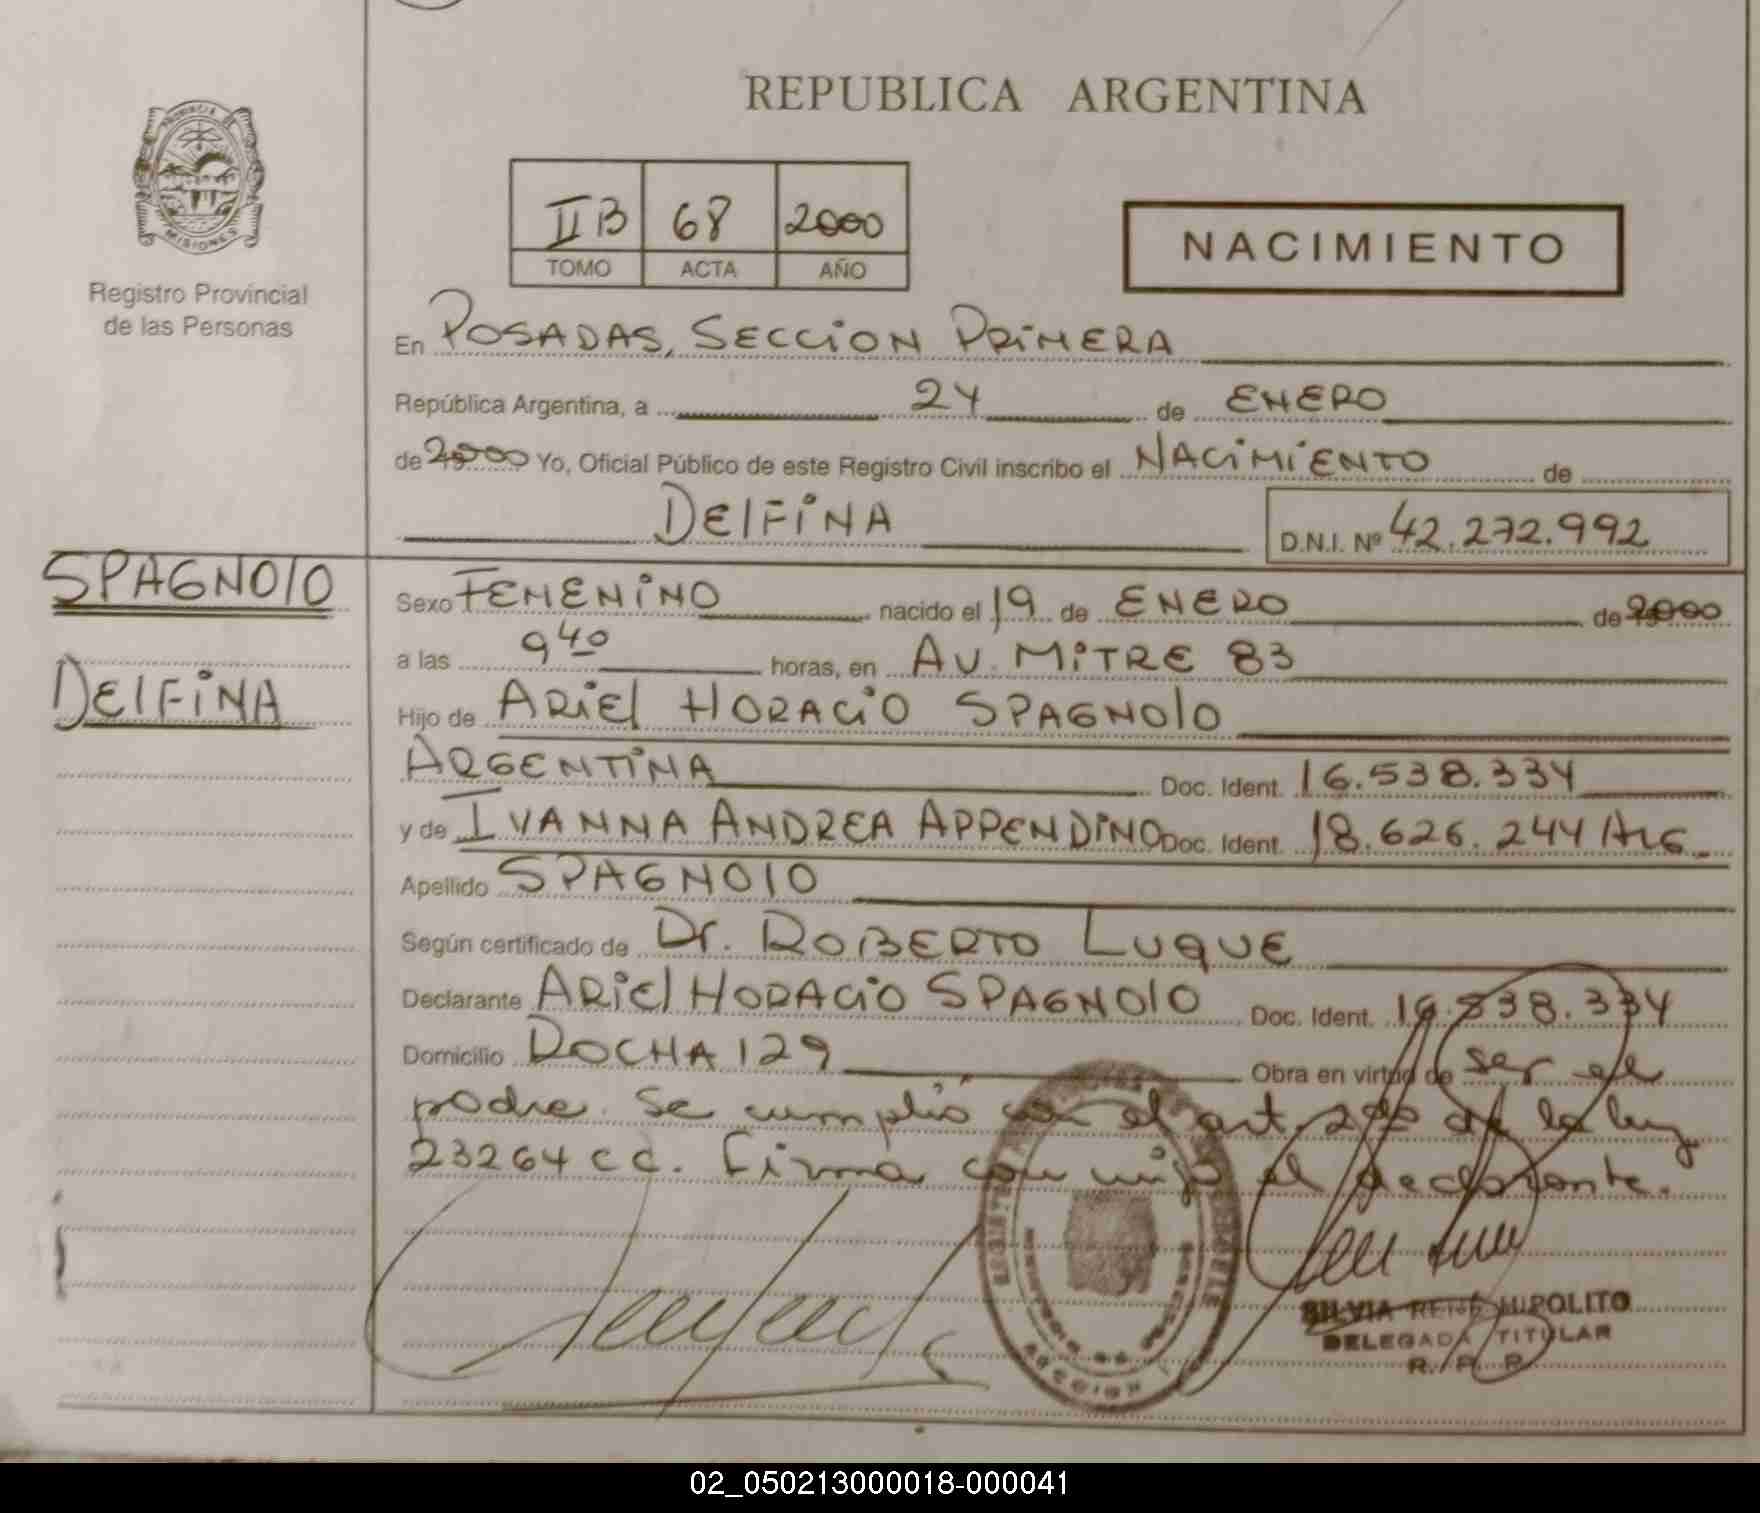 REPUBLICA ARGENTINA
PROVINCIA D
MISIONES
Registro Provincial
de las Personas
II B 68 2000
TOMO ACTA AÑO
NACIMIENTO
En POSADAS, SECCION PRIMERA
República Argentina, a 24 de ENERO
de 2000 Yo, Oficial Público de este Registro Civil inscribo el NACIMIENTO de
DElFINA D.N.I. Nº 42.272.992
SPAGNOlO
DElFINA
Sexo FEMENINO nacido el 19 de ENERO de 2000
a las 9 40 horas, en AV. MITRE 83
Hijo de ARIEl HORACIO SPAGNOlO
ARGENTINA Doc. Ident. 16.538.334
y de IVANNA ANDREA APPENDINO Doc. Ident. 18.626.244 ARG.
Apellido SPAGNOlO
Según certificado de Dr. ROBERTO LUQUE
Declarante ARIEl HORACIO SPAGNOlO Doc. Ident. 16.538.334
Domicilio ROCHA 129 Obra en virtud de ser el
padre. Se cumplió con el art. de la ley
23264 cc. Firma con migo el declarante.
SILVIA RENÉ HIPOLITO
DELEGADA TITULAR
R. P. P.
02_050213000018-000041